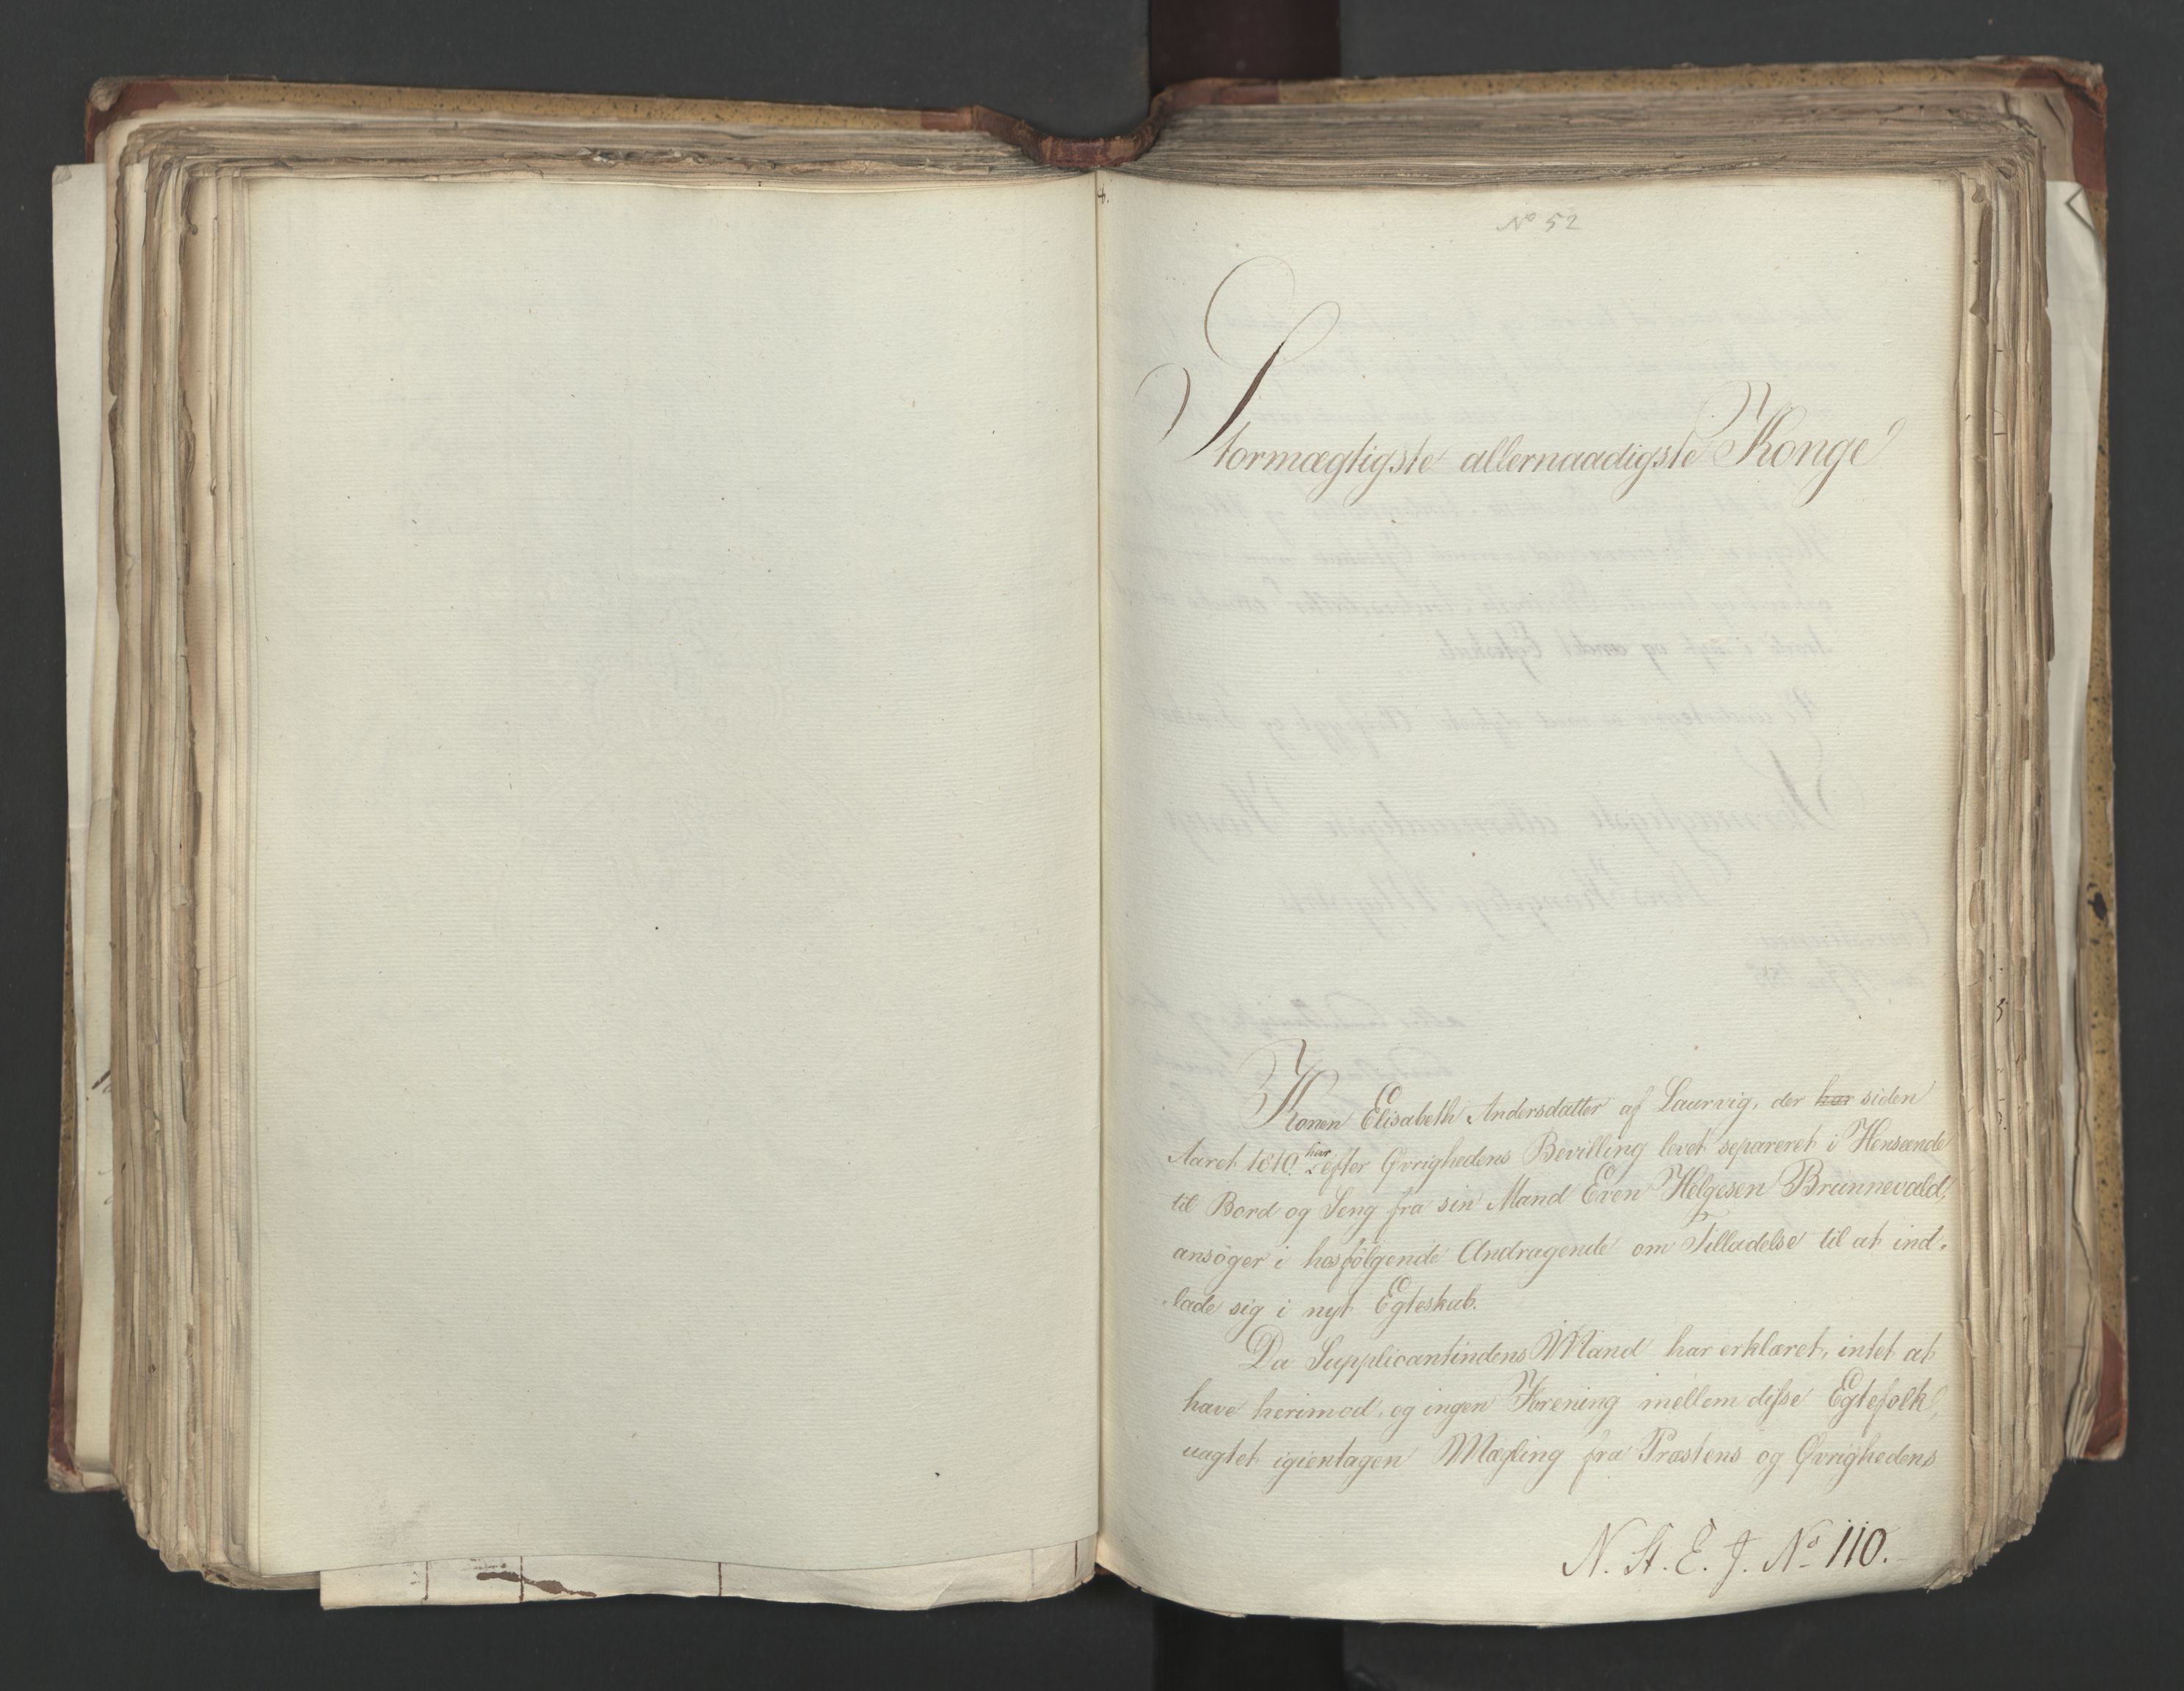 No 52
Stormægtigste allernaadigste Konge
Konen Elisabeth Andersdatter af Laurvig, der har siden
Aaret 1810. har efter Øvrighedens Bevilling levet separeret i Henseende
til Bord og Seng fra sin Mand Even Helgesen Brunnevald,
ansøger i hosfølgende Andragende om Tilladelse til at ind-
-lade sig i nyt Egteskab.
Da Supplicantindens Mand har erklæret, intet at
have herimod, og ingen Forening mellem disse Egtefolk,
uagtet igientagen Mægling fra Præstens og Øvrighedens
N. St. E. J. No 110.